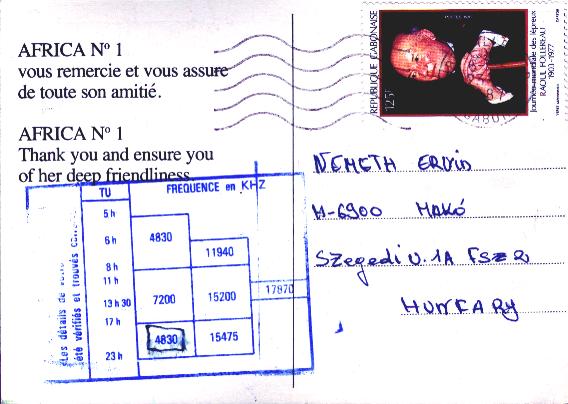 AFRICA Nº 1
vous remercie et vous assure
de toute son amitié.
AFRICA Nº 1
Thank you and ensure you
of her deep friendliness
TU
FREQUENCE en KHZ
5 h
6 h
8 h
11 h
13 h 30
17 h
23 h
4830
11940
7200
15200
17870
4830
15475
Les détails de
été vérifiés et trouvés
REPUBLIQUE GABONAISE
125F
Journée mondiale des lépreux
RAOUL FOLLEREAU
1903-1977
NEMETH ERVIN
H-6900 MAKÓ
Szegedi U. 1A FSZ 2
HUNGARY